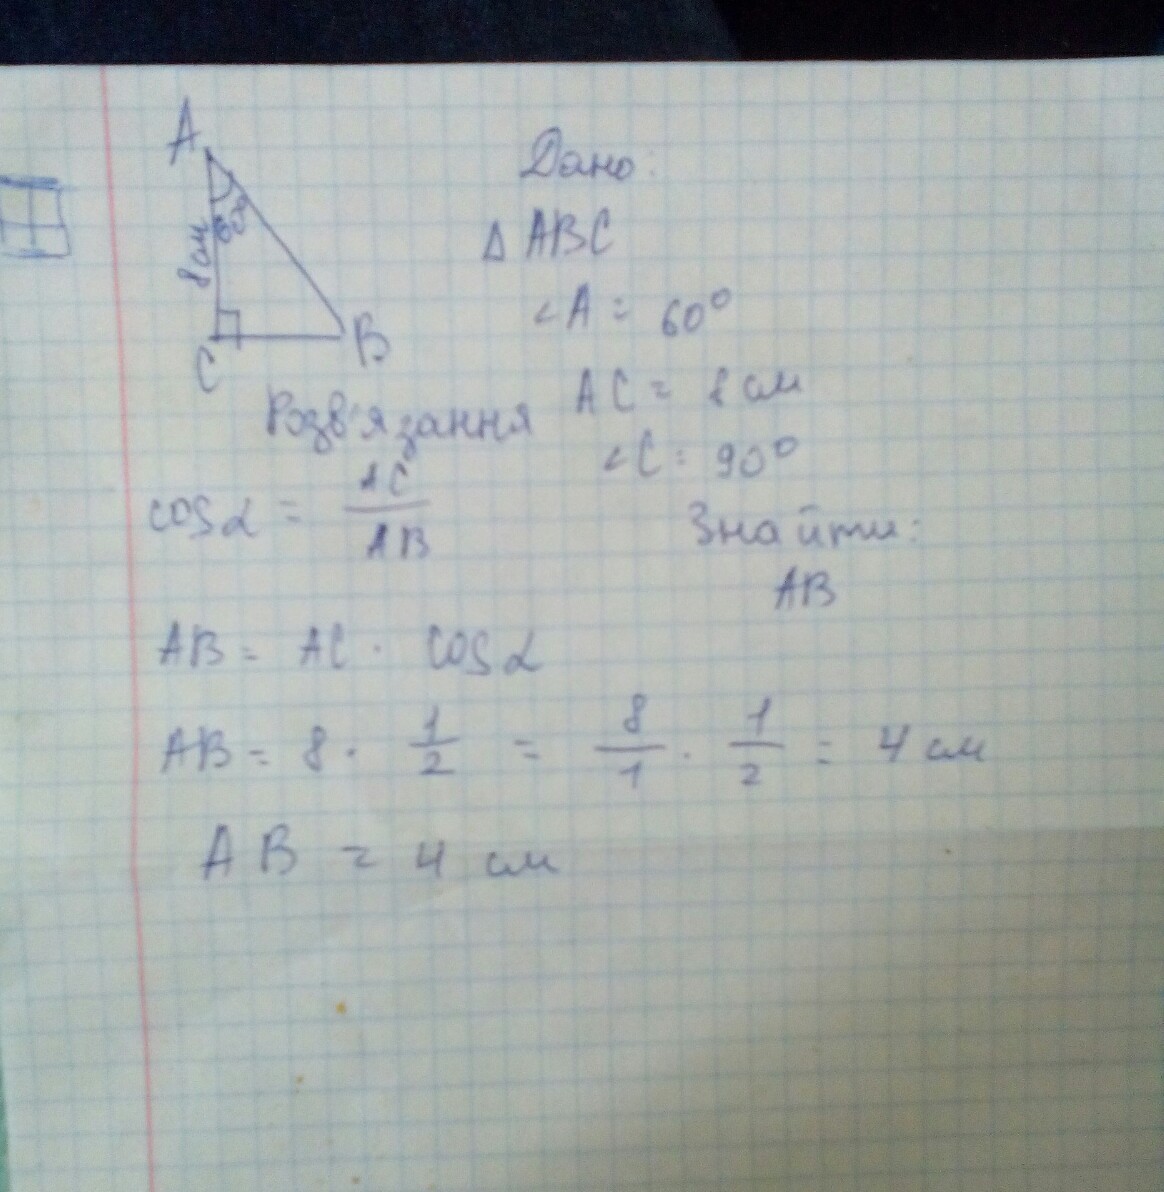 A
60°
8 см
C
B
Дано:
Δ ABC
∠A = 60°
AC = 8 см
∠C = 90°
Знайти:
AB
Розв'язання
cosα = AC / AB
AB = AC · cosα
AB = 8 · 1/2 = 8/1 · 1/2 = 4 см
AB = 4 см